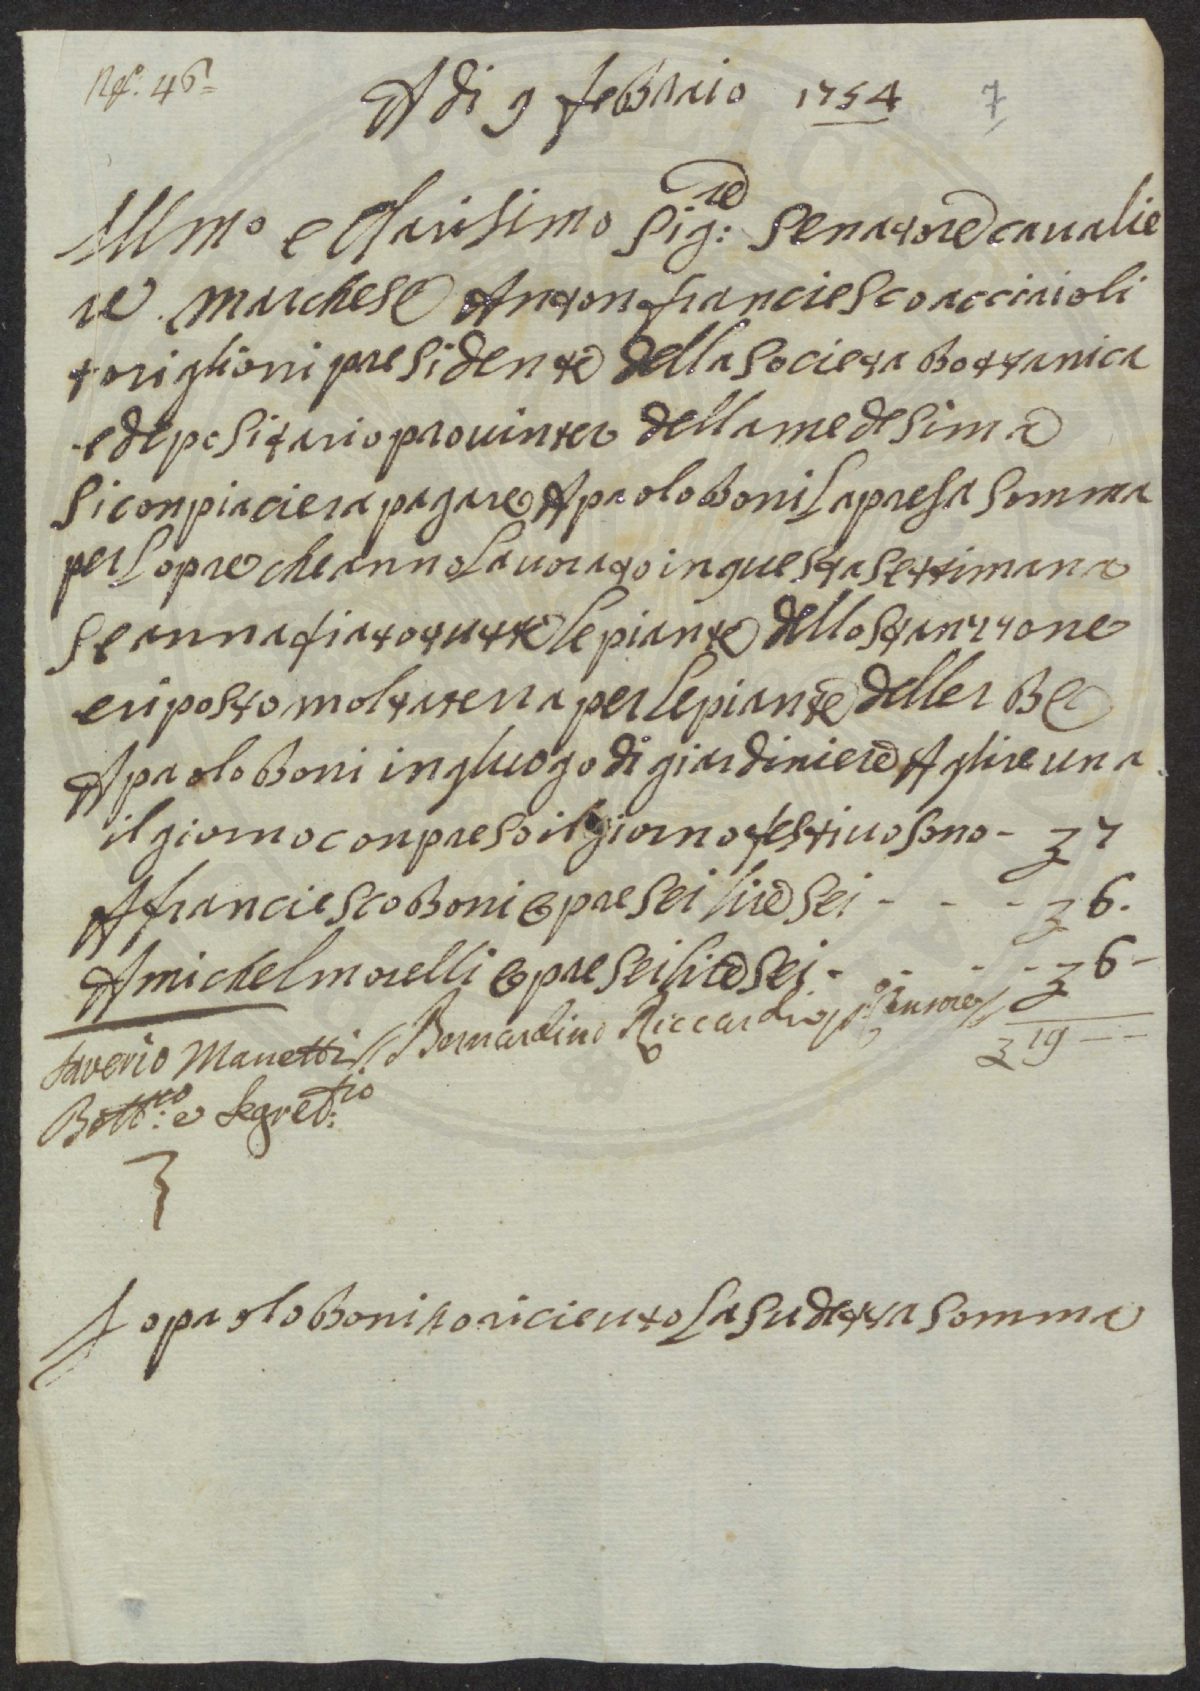 N.º 46
7
A di 9 febbraio 1754
Ill.mo e Clarisimo Sig.re Senatore cavalie
re Marchese Anton franciesco acciaioli
toriglioni presidente della Societa bottanica
e depositario pro uinter della medesima
Si conpiaciera pagare A paolo boni la presa somma
per lopre che anno lauorato in questa settimana
Se annafiato tutte le piante dello stanzzone
e riposto molta terra per le piante delle rbe
A paolo boni in gluogo di giardiniere A glire una
il giorno conpreso il giorno festiuo sono - 7
A franciesco boni opre sei lire sei - - - 6.
A michel morelli opre sei lire sei - - - - 6 -
Saverio Manetti Bernardino Riccardi Censore 19 - -
Bott.co e Segret.rio
Io paolo boni o riceuto la sudetta somma